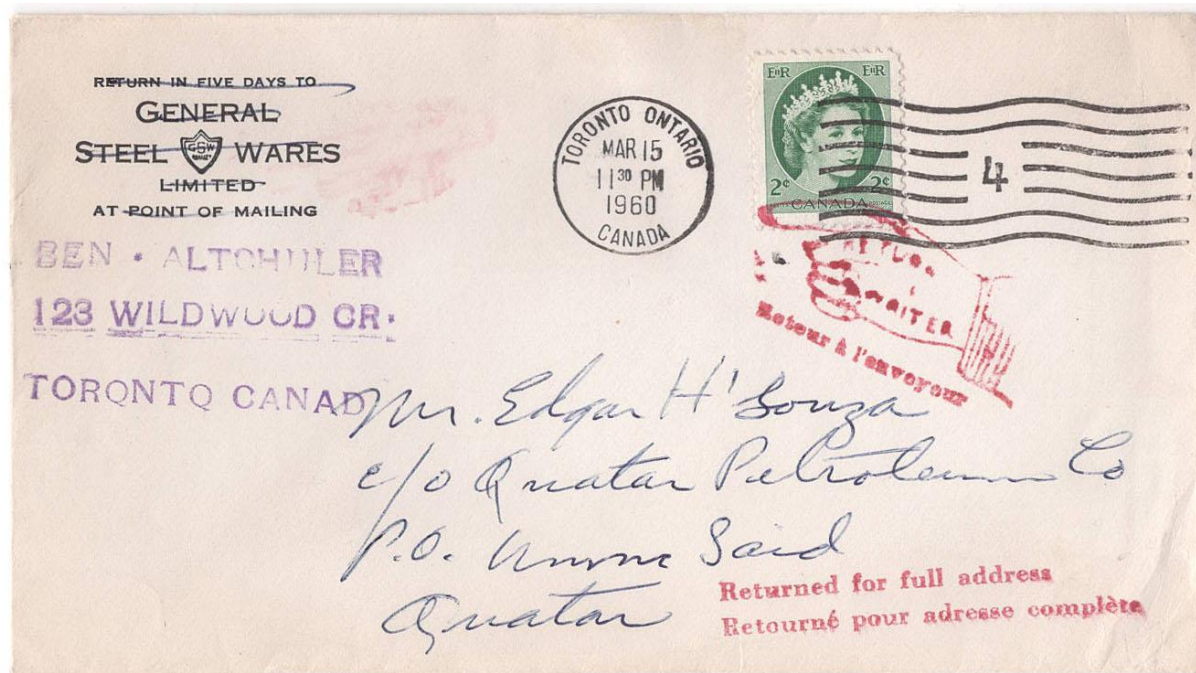 RETURN IN FIVE DAYS TO
GENERAL
STEEL GSW WARES
LIMITED
AT POINT OF MAILING
BEN · ALTCHULER
123 WILDWOOD CR.
TORONTO CANAD
TORONTO ONTARIO
MAR 15
11 30 PM
1960
CANADA
EIIR EIIR
2¢ 2¢
CANADA
POSTES POSTAGE
4
RETURN
WRITER
Retour à l'envoyeur
Mr. Edgar H'Souza
c/o Quatar Petroleum Co
P.O. Umm Said
Quatar
Returned for full address
Retourné pour adresse complète